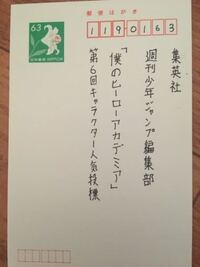 郵便はがき
63
NIPPON
1190163
集英社
週刊少年ジャンプ編集部
「僕のヒーローアカデミア」
第6回キャラクター人気投標